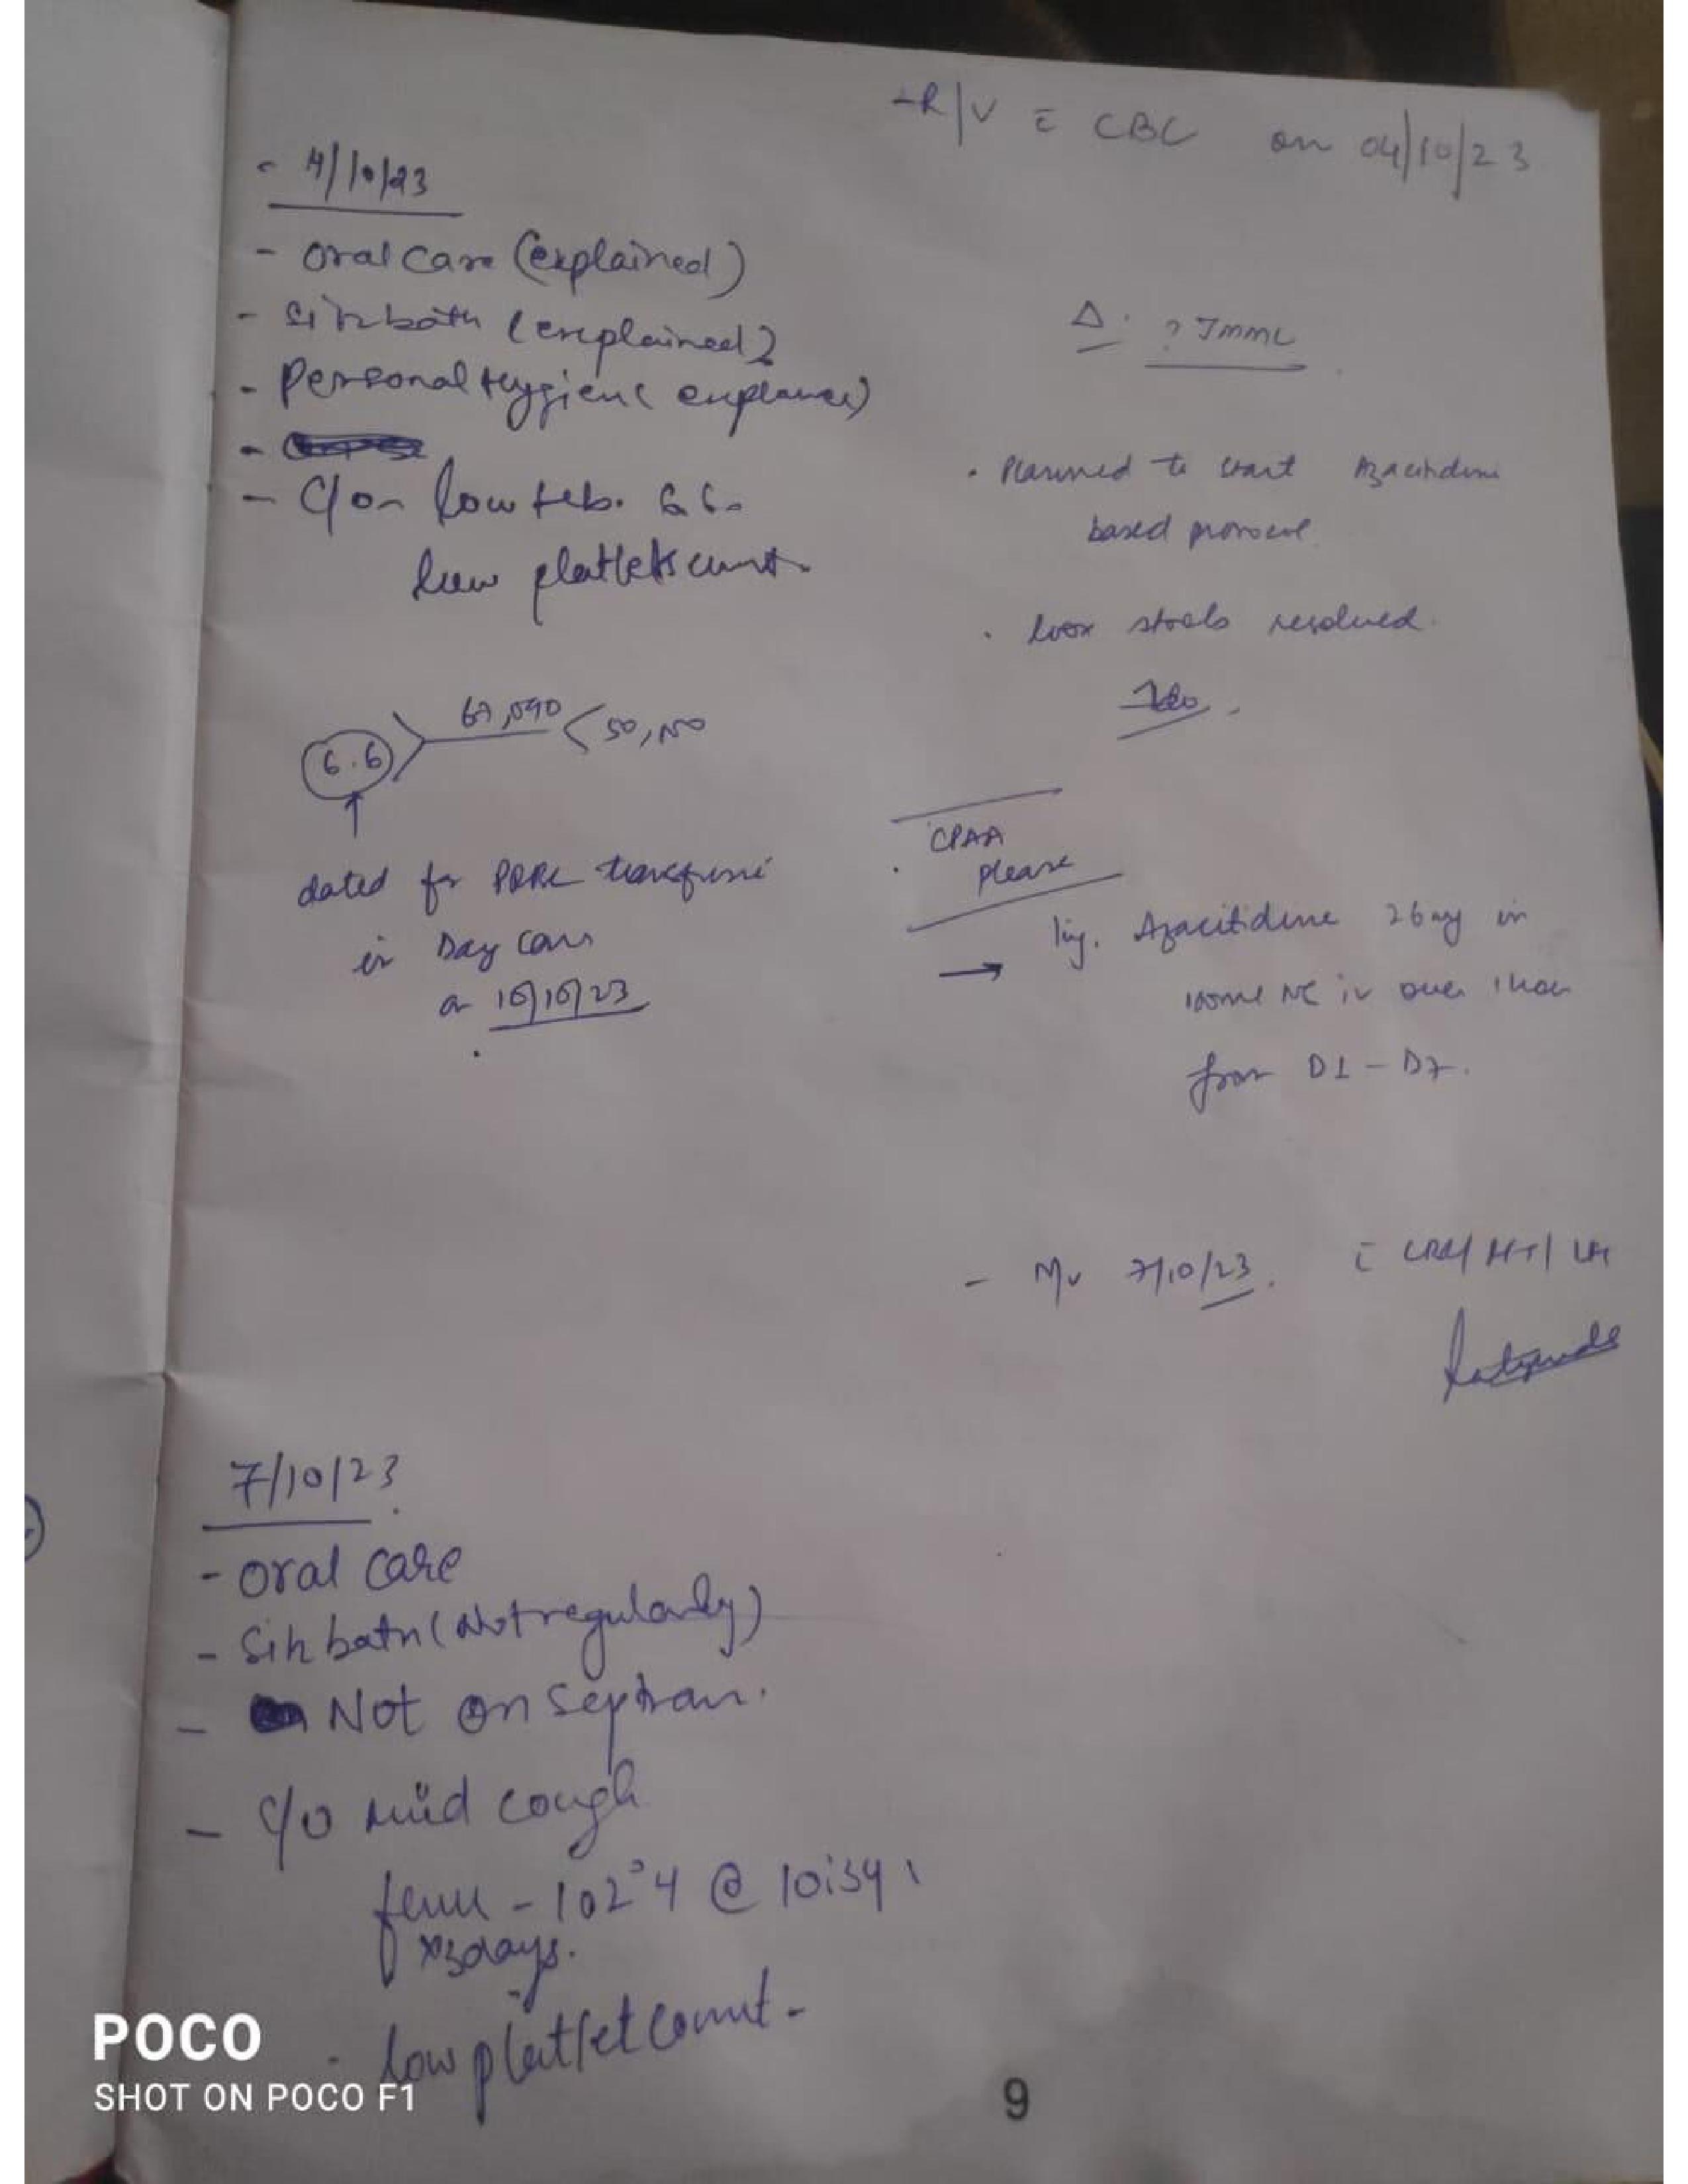 -R/V c̄ CBC on 04/10/23
- 4/10/23
- Oral care (explained)
- Sitzbath (explained)
- Personal Hygiene (explained)
- C/o low Hb. 6.6
low platlets count.
6.6 > 67,090 < 50,000
↑
dated for PRBC
in Day care
on
Δ. ? JMML
. Planned to start Azacitidine
based protocol
. loose stools resolved.
. CPAA
please
→ Inj. Azacitidine 26mg in
100ml NS iv over 1 hour
from D1 - D7.
- R/v 7/10/23. c̄ CBC/
7/10/23.
- Oral care
- Sitz bath (Not regularly)
- Not on Septran.
- C/o mild cough
fever - 102°4 @ 10:34
x3days.
- low platlet count -
POCO
SHOT ON POCO F1
9